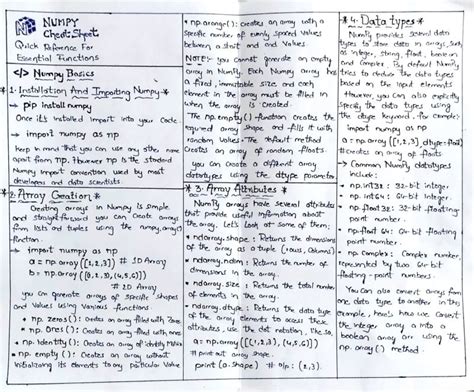 NUMPY
Cheat Sheet
Quick Reference For
Essential Functions
</> Numpy Basics
* 1. Installation And Importing Numpy *
→ pip install numpy
Once it's installed import into your Code.
→ import numpy as np
Keep in mind that you can use any other name
apart from np. However np is the standard
Numpy import convention used by most
developers and data scientists
* 2. Array Creation *
Creating arrays in Numpy is simple
and straightforward you can Create arrays
from lists and tuples using the numpy.array()
function.
→ import numpy as np
a = np.array([1,2,3]) # 1D Array
b = np.array([(1,2,3), (4,5,6)])
# 2D Array
you can generate arrays of specific shapes
and Values using Various functions
• np.zeros(): Creates an array filled with Zeros
• np.Ones(): Creates an array filled with ones
• np.identity(): Creates an array of identity Matrix
• np.empty(): Creates an array without
initializing its elements to any particular Value
• np.arange(): Creates an array with a
specific number of evenly spaced Values
between a start and end Values
NOTE: you cannot generate an empty
array in NumPy. Each Numpy array has
a fixed, immutable size and each
element in the array must be filled in
when the array is Created.
The np.empty() function creates the
required array shape and fills it with
random Values. The default method
Creates an array of random floats.
you can Create a different array
datatypes using the dtype parameter
* 3: Array Attributes *
NumPy arrays have several attributes
that provide useful information about
the array. Let's Look at some of them:
• ndarray.shape: Returns the dimensions
of the array as a tuple (rows, Columns)
• ndarray.ndim: Returns the number of
dimensions in the array.
• ndarray.size: Returns the total number
of elements in the array.
• ndarray.dtype: Returns the data type
of the array elements to access these
attributes, use the dot notation, Like so,
a = np.array([(1,2,3), (4,5,6)])
# print out array shape.
print(a.shape) # o/p: (2,3)
* 4: Data types *
NumPy provides several data
types to store data in arrays, such
as integer, string, float, boolean
and Complex. By default NumPy
tries to deduce the data types
based on the input elements
However, you can also explicitly
specify the data types using
the dtype keyword. for example:
import numpy as np
a = np.array([1,2,3], dtype=float)
# Creates an array of floats
→ Common NumPy datatypes
include:
• np.int32: 32-bit integer.
• np.int64: 64-bit integer.
• np.float32: 32-bit floating-
point number.
• np.float64: 64-bit floating
point number.
• np.Complex: Complex number,
represented by two 64-bit
floating-point numbers.
You can also convert arrays from
one data type to another in this
example, here's how we convert
the integer array a into a
boolean array are using the
np.array() method.